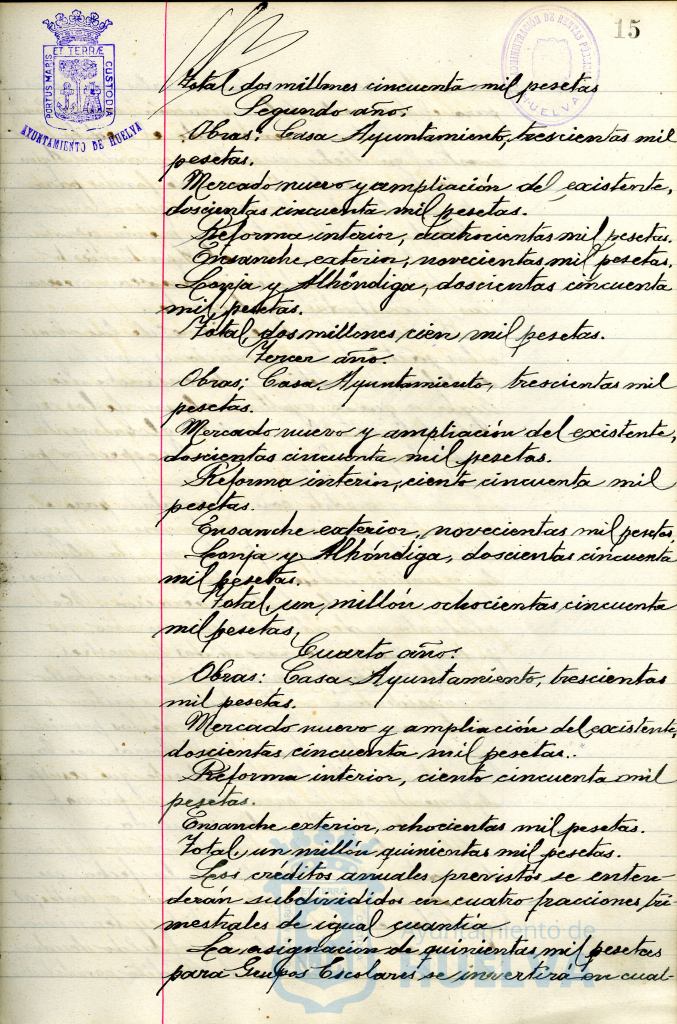 15
PORTUS MARIS ET TERRÆ CUSTODIA
AYUNTAMIENTO DE HUELVA
ADMINISTRACIÓN DE RENTAS PÚBLICAS
HUELVA
Total, dos millones cincuenta mil pesetas
Segundo año:
Obras: Casa Ayuntamiento, trescientas mil
pesetas.
Mercado nuevo y ampliación del existente,
doscientas cincuenta mil pesetas.
Reforma interior, cuatrocientas mil pesetas.
Ensanche exterior, novecientas mil pesetas.
Lonja y Alhóndiga, doscientas cincuenta
mil pesetas.
Total, dos millones cien mil pesetas.
Tercer año.
Obras; Casa Ayuntamiento, trescientas mil
pesetas.
Mercado nuevo y ampliación del existente,
doscientas cincuenta mil pesetas.
Reforma interior, ciento cincuenta mil
pesetas.
Ensanche exterior, novecientas mil pesetas,
Lonja y Alhóndiga, doscientas cincuenta
mil pesetas.
Total, un millón ochocientas cincuenta
mil pesetas,
Cuarto año:
Obras: Casa Ayuntamiento, trescientas
mil pesetas.
Mercado nuevo y ampliación del existente,
doscientas cincuenta mil pesetas..
Reforma interior, ciento cincuenta mil
pesetas.
Ensanche exterior, ochocientas mil pesetas.
Total, un millón quinientas mil pesetas.
Los créditos anuales previstos se enten-
derán subdivididos en cuatro fracciones tri-
mestrales de igual cuantía
La asignación de quinientas mil pesetas
para Grupos Escolares se invertirá en cuat-
Ayuntamiento de
HUELVA